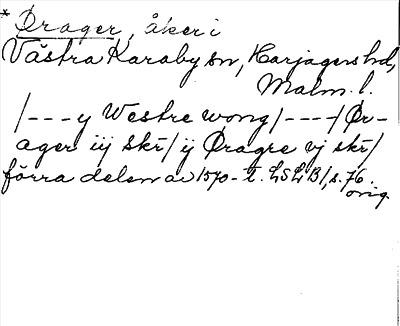 * Ørager, åker i
Västra Karaby sn, Harjagers hd,
Malm. l.
/---y Westre wong/----/Ør-
ager iij skr/ ij Øragre vj skr/
förra delen av 1570-t. LSLB1, s. 76.
orig.